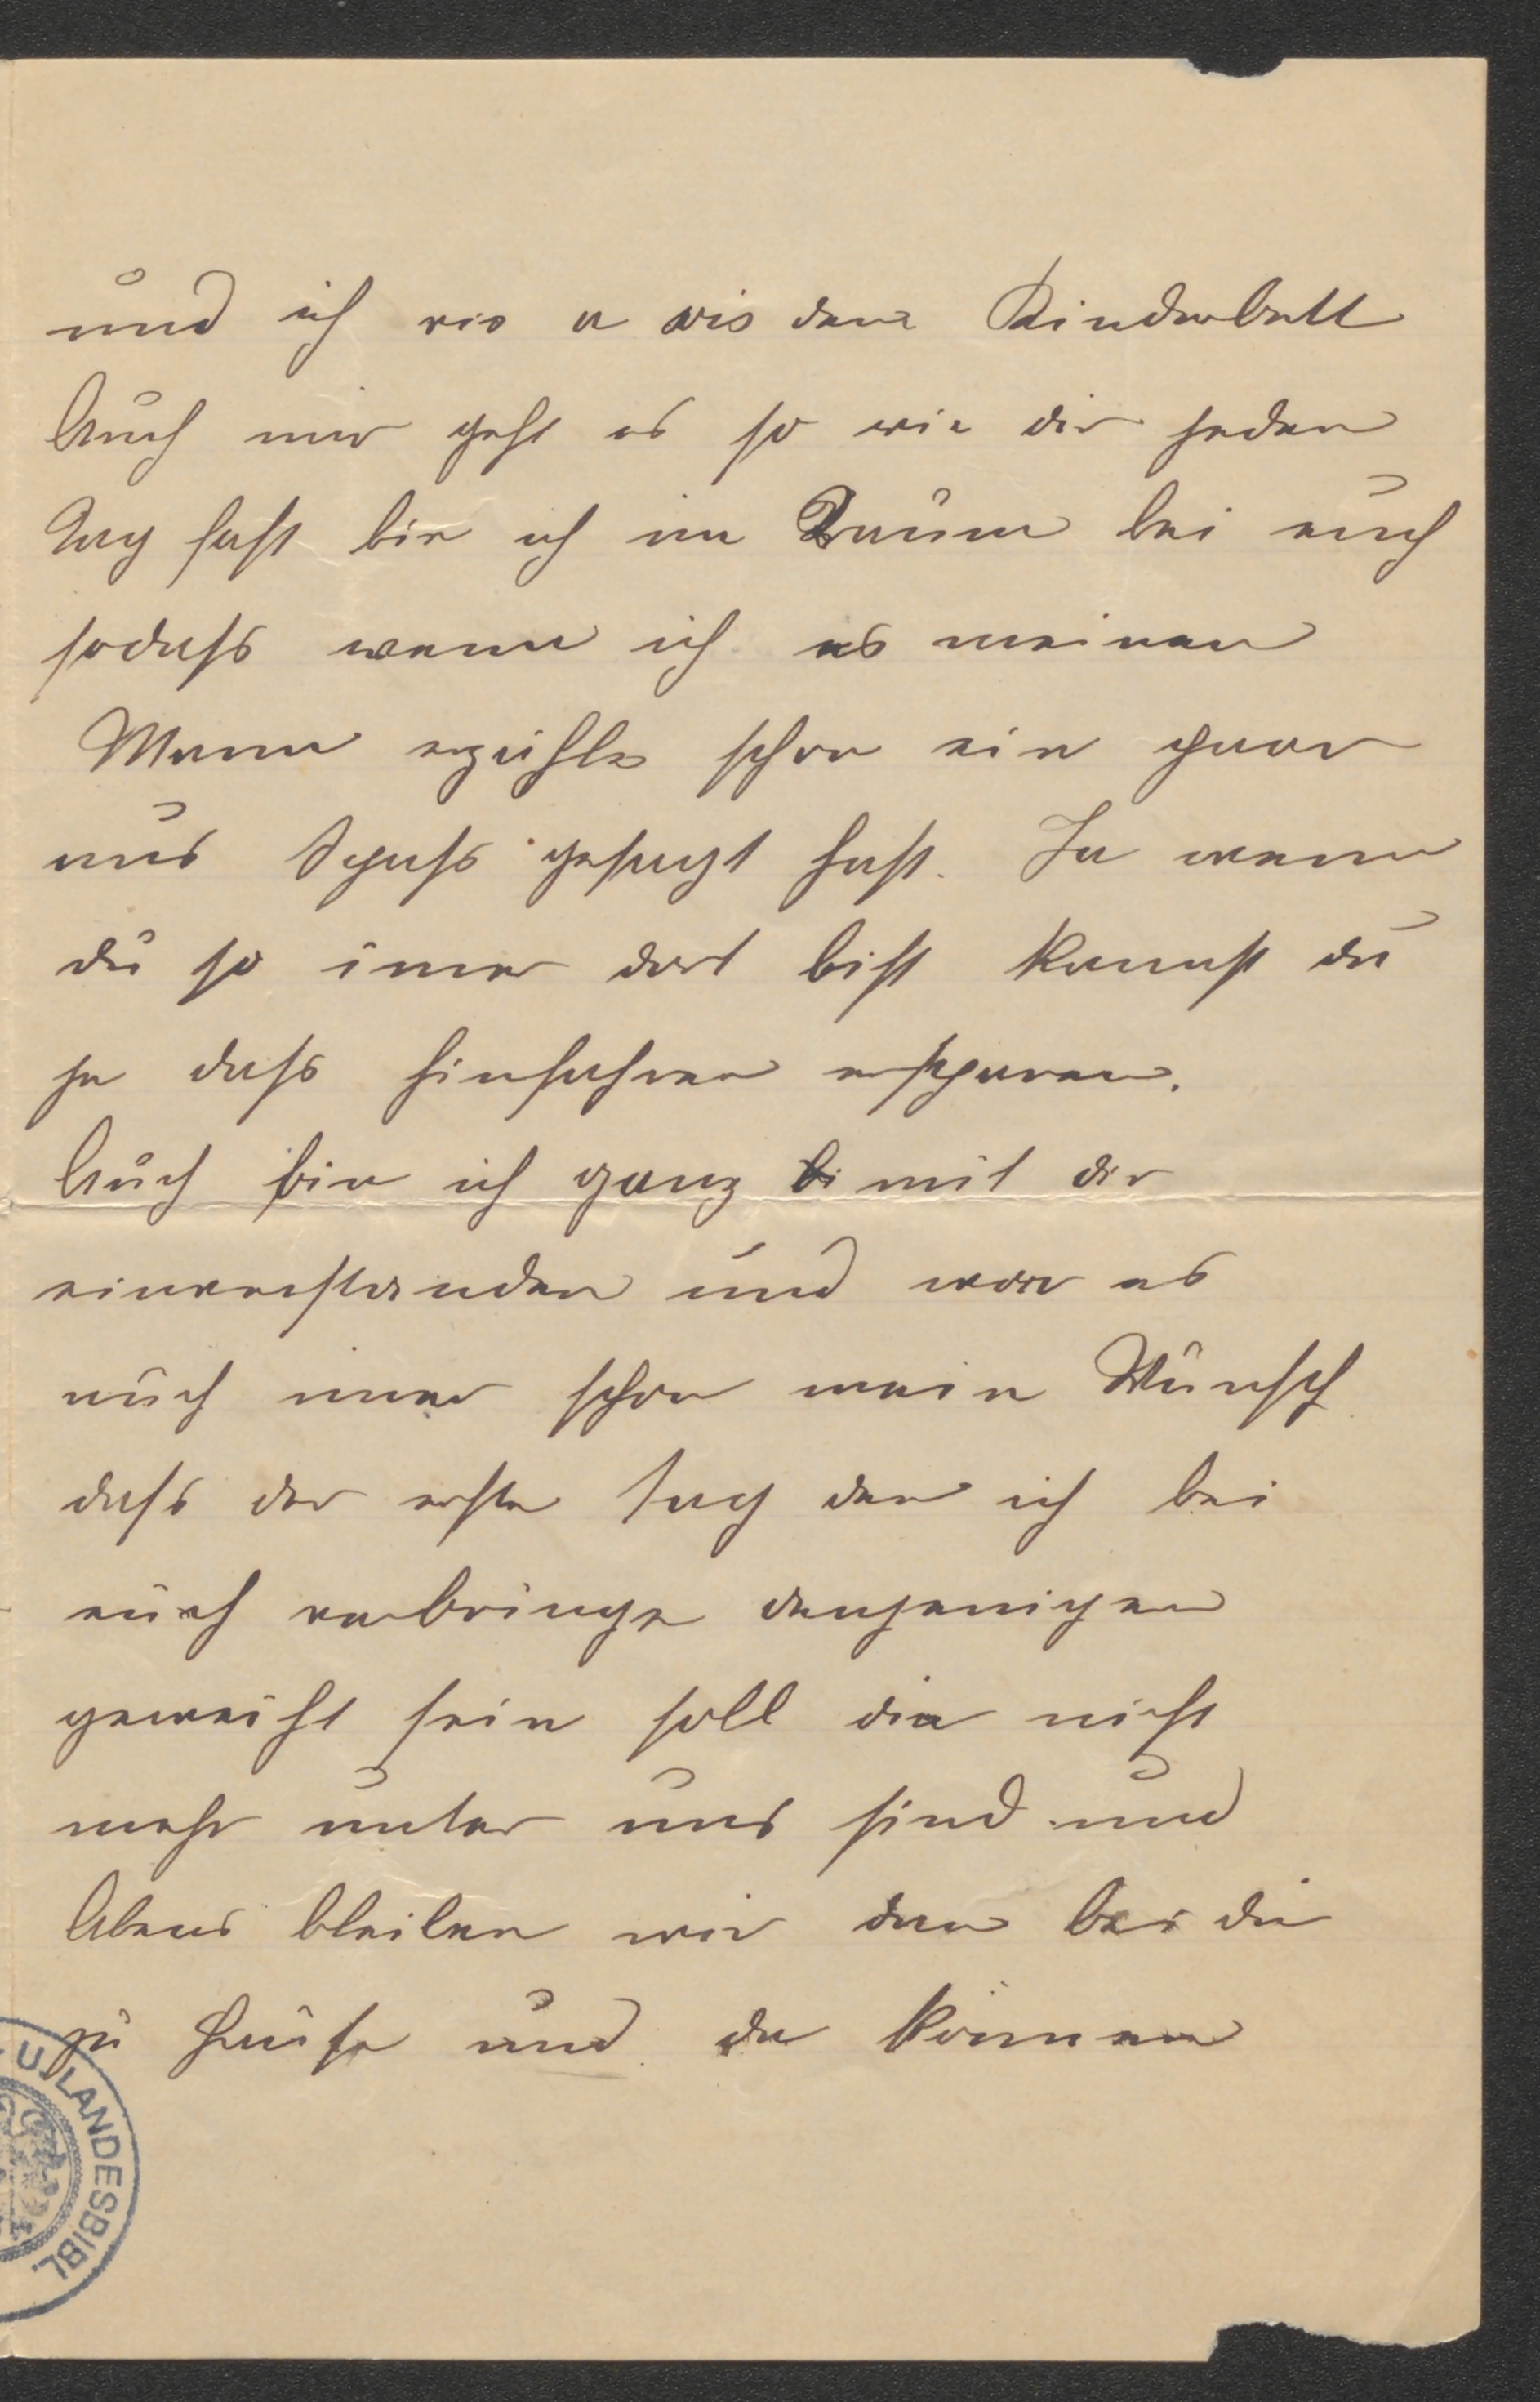 und ich vis a vis dem Kinderbett
Auch mir geht es so wie dir jeden
Tag fast bin ich im Traum bei euch
sodass wenn ich es meinen
Mann erzähle schon ein paar
aus Spass gesagt hast. Ja wenn
du so imer dort bist kannst du
ja dass hinfahren ersparen.
Auch bin ich ganz mit dir
einverstanden und war es
auch imer schon mein Wunsch
dass der erste Tag den ich bei
euch verbringe denjenigen
geweiht sein soll die nicht
mehr unter uns sind und
Abens bleiben wir dan bei dir
zu Hause und da können
U. LANDESBIBL.